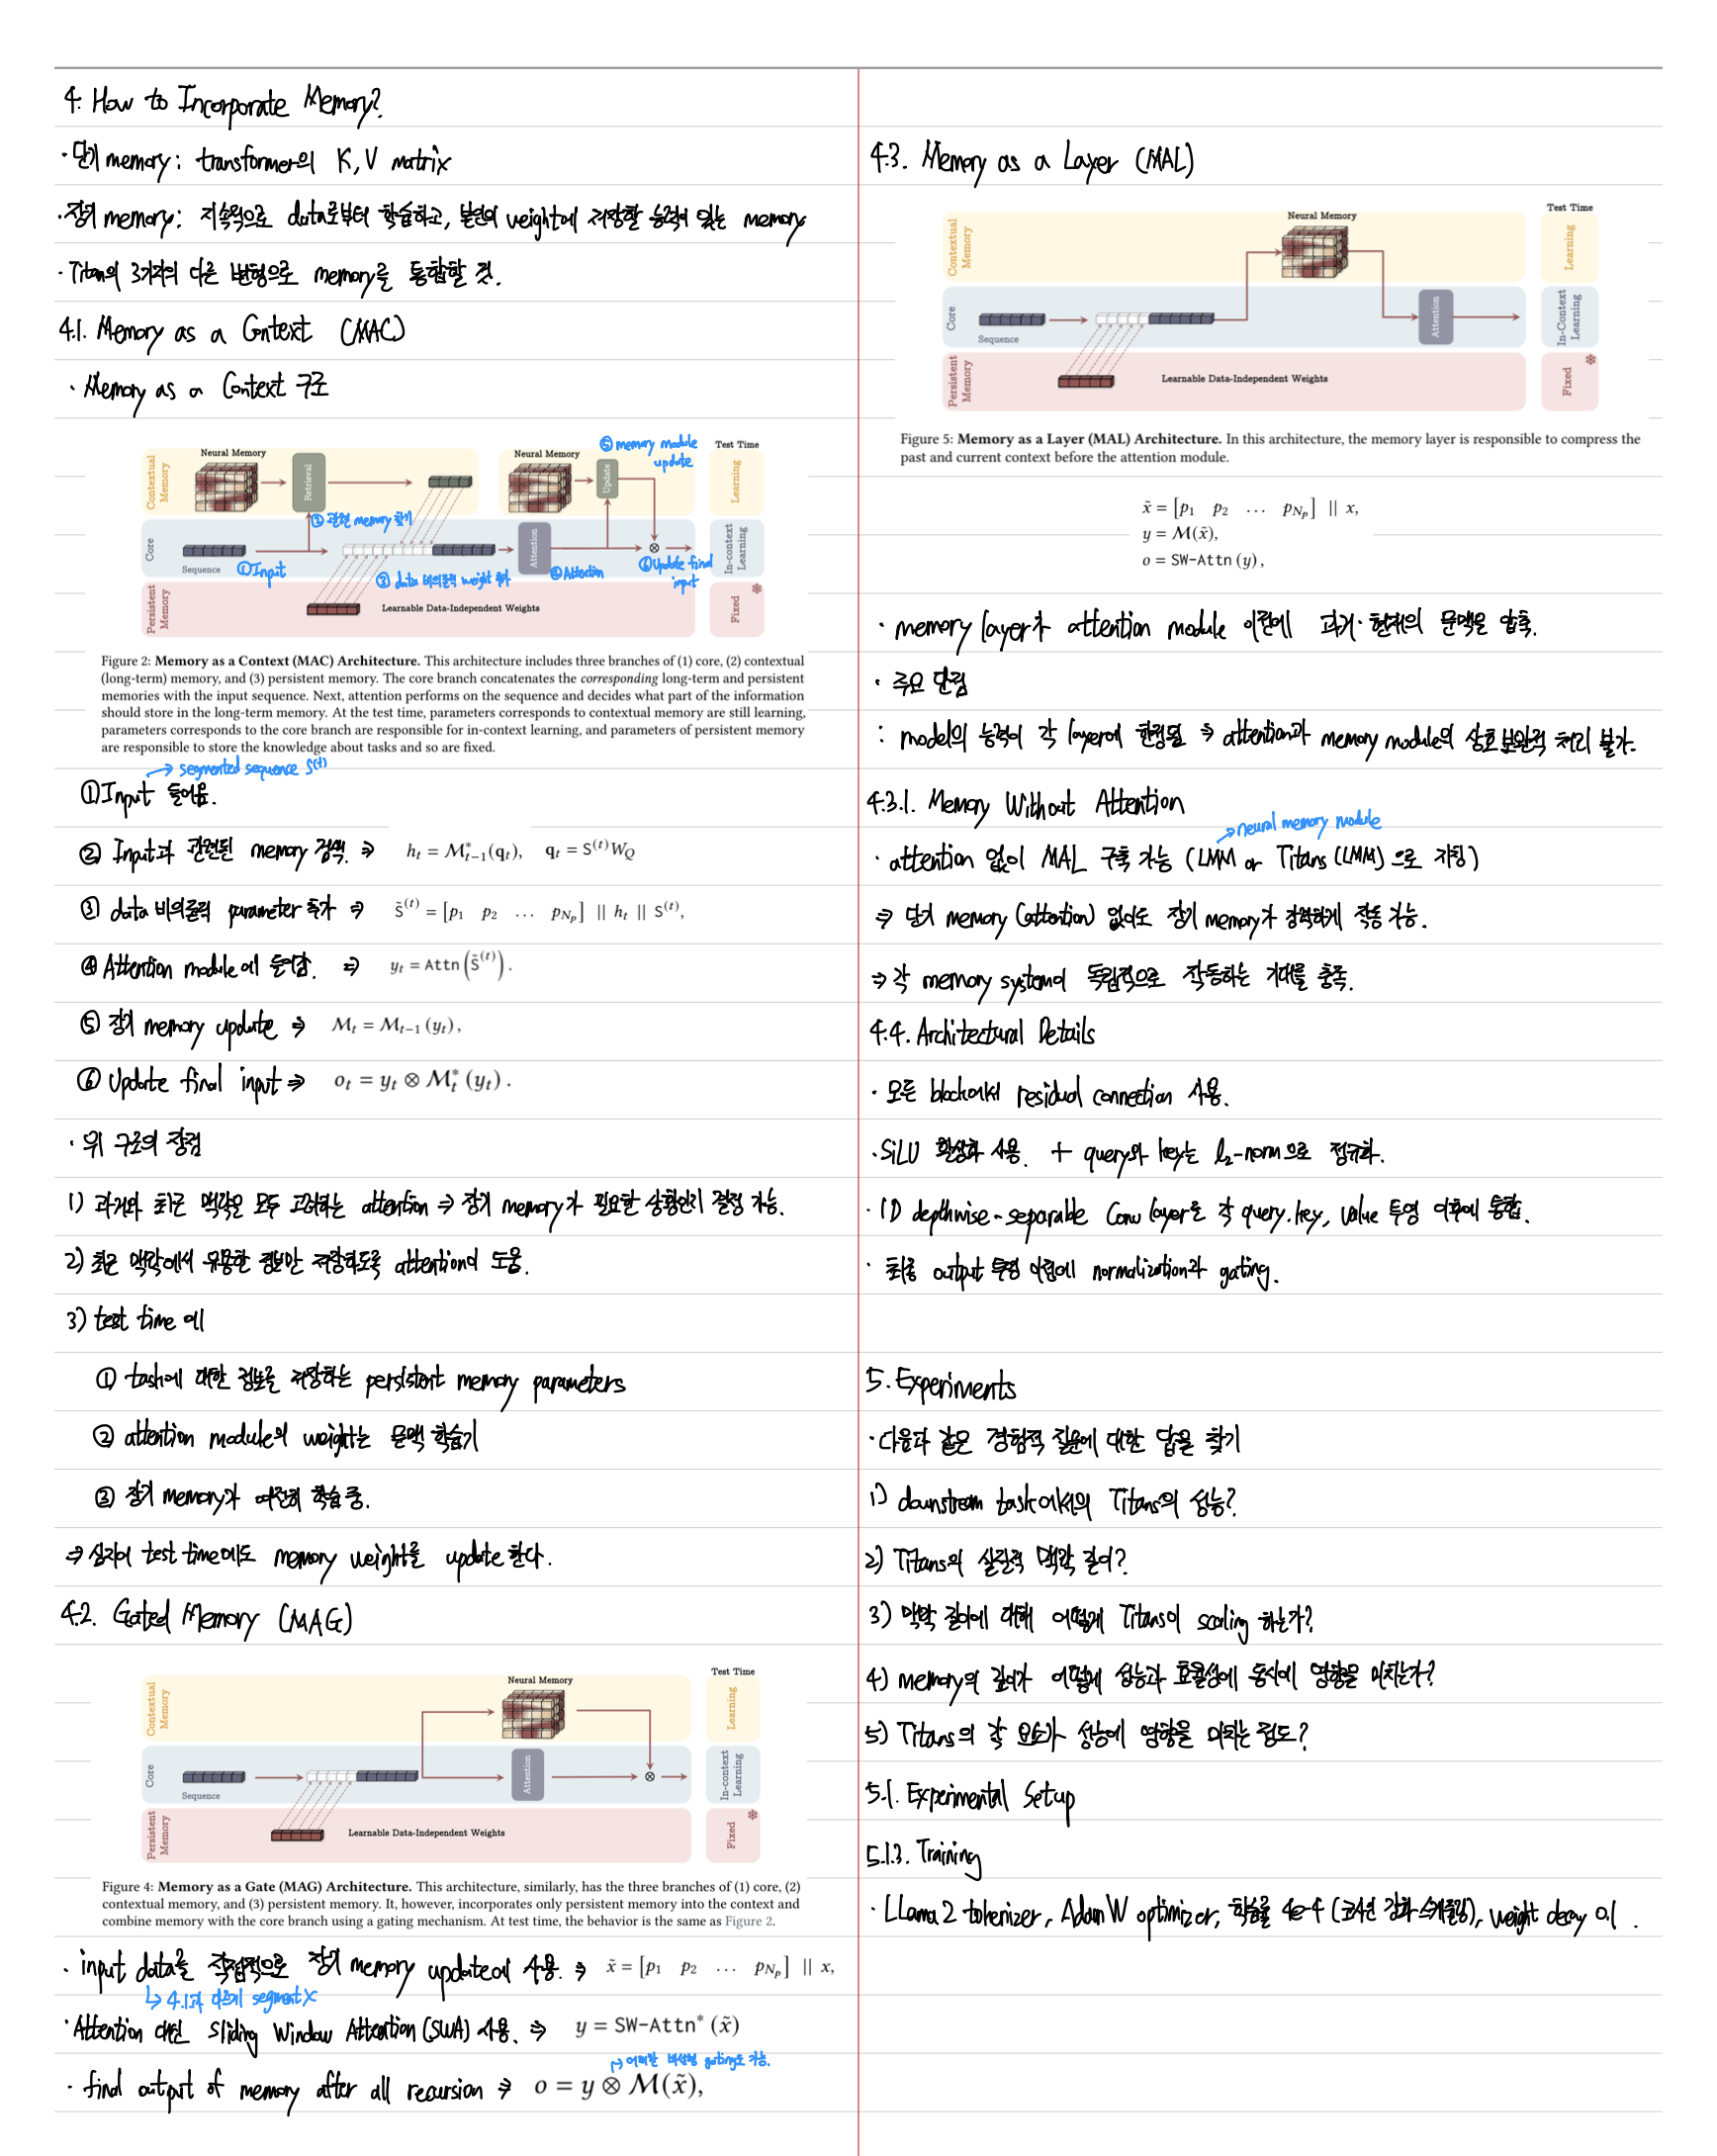 4. How to Incorporate Memory?
· 단기 memory : transformer의 K, V matrix
· 장기 memory : 지속적으로 data로부터 학습하고, 본인의 weight에 저장할 능력이 있는 memory
· Titan의 3가지의 다른 변형으로 memory를 통합할 것.
4.1. Memory as a Context (MAC)
· Memory as a Context 구조
⑤ memory module update
Neural Memory
Neural Memory
Test Time
Contextual Memory
Retrieval
Update
Learning
② 관련 memory 찾기
Core
Sequence
① Input
③ data 비의존적 weight 추가
Attention
④ Attention
⊗
⑥ Update final input
In-context Learning
Persistent Memory
Learnable Data-Independent Weights
Fixed
Figure 2: Memory as a Context (MAC) Architecture. This architecture includes three branches of (1) core, (2) contextual
(long-term) memory, and (3) persistent memory. The core branch concatenates the corresponding long-term and persistent
memories with the input sequence. Next, attention performs on the sequence and decides what part of the information
should store in the long-term memory. At the test time, parameters corresponds to contextual memory are still learning,
parameters corresponds to the core branch are responsible for in-context learning, and parameters of persistent memory
are responsible to store the knowledge about tasks and so are fixed.
→ segmented sequence S⁽ᵗ⁾
① Input 들어옴.
② Input과 관련된 memory 검색. ⇒ hₜ = M*ₜ₋₁(qₜ), qₜ = S⁽ᵗ⁾W_Q
③ data 비의존적 parameter 추가 ⇒ S̃⁽ᵗ⁾ = [p₁ p₂ … p_{N_p}] || hₜ || S⁽ᵗ⁾,
④ Attention module에 들어감. ⇒ yₜ = Attn(S̃⁽ᵗ⁾).
⑤ 장기 memory update ⇒ Mₜ = Mₜ₋₁(yₜ),
⑥ Update final input ⇒ oₜ = yₜ ⊗ M*ₜ(yₜ).
· 위 구조의 장점
1) 과거와 최근 맥락을 모두 고려하는 attention ⇒ 장기 memory가 필요한 상황인지 결정 가능.
2) 최근 맥락에서 유용한 정보만 저장하도록 attention이 도움.
3) test time 에
① task에 대한 정보를 저장하는 persistent memory parameters
② attention module의 weight는 문맥 학습기
③ 장기 memory가 여전히 학습 중.
⇒ 심지어 test time에도 memory weight를 update 한다.
4.2. Gated Memory (MAG)
Neural Memory
Test Time
Contextual Memory
Learning
Core
Sequence
Attention
⊗
In-context Learning
Persistent Memory
Learnable Data-Independent Weights
Fixed
Figure 4: Memory as a Gate (MAG) Architecture. This architecture, similarly, has the three branches of (1) core, (2)
contextual memory, and (3) persistent memory. It, however, incorporates only persistent memory into the context and
combine memory with the core branch using a gating mechanism. At test time, the behavior is the same as Figure 2.
· input data를 직접적으로 장기 memory update에 사용. ⇒ x̃ = [p₁ p₂ … p_{N_p}] || x,
↳ 4.1과 다르게 segment X
· Attention 대신 Sliding Window Attention (SWA) 사용. ⇒ y = SW-Attn*(x̃)
↱ 어떠한 비선형 gating도 가능.
· final output of memory after all recursion ⇒ o = y ⊗ M(x̃),
4.3. Memory as a Layer (MAL)
Neural Memory
Test Time
Contextual Memory
Learning
Core
Sequence
Attention
In-Context Learning
Persistent Memory
Learnable Data-Independent Weights
Fixed
Figure 5: Memory as a Layer (MAL) Architecture. In this architecture, the memory layer is responsible to compress the
past and current context before the attention module.
x̃ = [p₁ p₂ … p_{N_p}] || x,
y = M(x̃),
o = SW-Attn(y),
· memory layer가 attention module 이전에 과거·현재의 문맥을 압축.
· 주요 단점
: model의 능력이 각 layer에 한정됨 ⇒ attention과 memory module의 상호보완적 처리 불가.
4.3.1. Memory Without Attention
→ neural memory module
· attention 없이 MAL 구축 가능 (LMM or Titans (LMM) 으로 지칭)
⇒ 단기 memory (attention) 없이도 장기 memory가 강력하게 작동 가능.
⇒ 각 memory system이 독립적으로 작동하는 기대를 충족.
4.4. Architectural Details
· 모든 block에서 residual connection 사용.
· SiLU 활성화 사용. + query와 key는 l₂-norm으로 정규화.
· 1D depthwise-separable Conv layer를 각 query, key, value 투영 이후에 통합.
· 최종 output 투영 이전에 normalization과 gating.
5. Experiments
· 다음과 같은 경험적 질문에 대한 답을 찾기
1) downstream task에서의 Titans의 성능?
2) Titans의 실질적 맥락 길이?
3) 맥락 길이에 대해 어떻게 Titans이 scaling 하는가?
4) memory의 깊이가 어떻게 성능과 효율성에 동시에 영향을 미치는가?
5) Titans의 각 요소가 성능에 영향을 미치는 정도?
5.1. Experimental Setup
5.1.3. Training
· LLama 2 tokenizer, AdamW optimizer, 학습률 4e-4 (코사인 감화 스케줄링), weight decay 0.1.